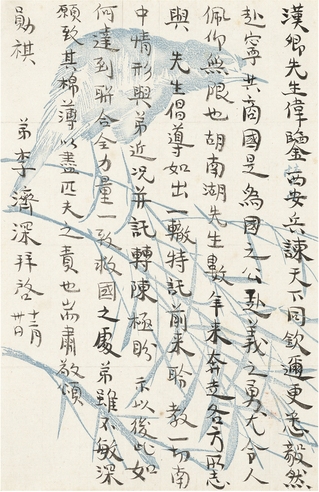 漢卿先生偉鑒西安兵諫天下同欽邇更悉毅然
赴寧共商國是為國之公赴義之勇尤令人
佩仰無限也胡南湖先生數年來奔走各方所志
與先生倡導如出一轍特託前來聆教一切南
中情形與弟近況并託轉陳極盼示以後此如
何達到聯合全力量一致救國之處弟雖不敏深
願致其棉薄以盡匹夫之責也耑肅敬頌
勛祺
弟李濟深拜啓 十二月廿日